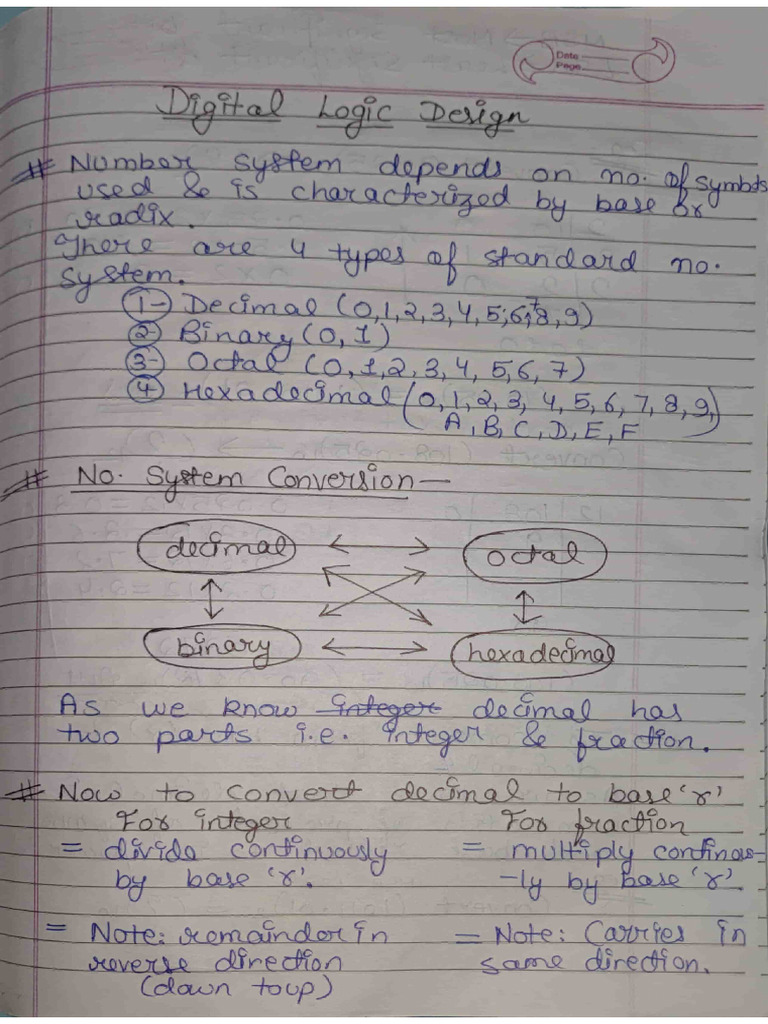 Date
Page
Digital Logic Design
# Number system depends on no. of symbols
used & is characterized by base or
radix.
There are 4 types of standard no.
system.
1- Decimal (0,1,2,3,4,5,6,7,8,9)
2- Binary (0,1)
3- Octal (0,1,2,3,4,5,6,7)
4 Hexadecimal (0,1,2,3,4,5,6,7,8,9,
A,B,C,D,E,F)
# No. System Conversion—
decimal ↔ octal
binary ↔ hexadecimal
As we know integer decimal has
two parts i.e. integer & fraction.
# Now to convert decimal to base 'r'
For integer
= divide continuously
by base 'r'.
= Note: remainder in
reverse direction
(down to up)
For fraction
= multiply continous-
-ly by base 'r'
= Note: Carries in
same direction.